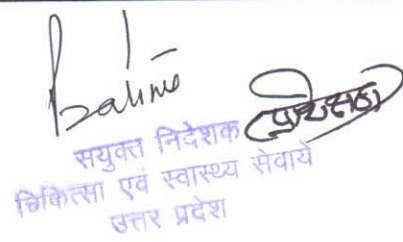 सयुक्त निदेशक
चिकित्सा एवं स्वास्थ्य सेवायें
उत्तर प्रदेश